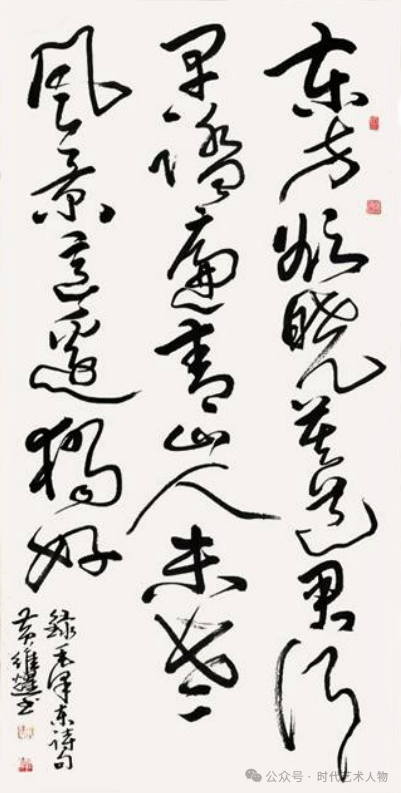 东方欲晓莫道君行
早踏遍青山人未老
風景這邊獨好
録毛泽东詩句
黄維书
公众号 · 时代艺术人物